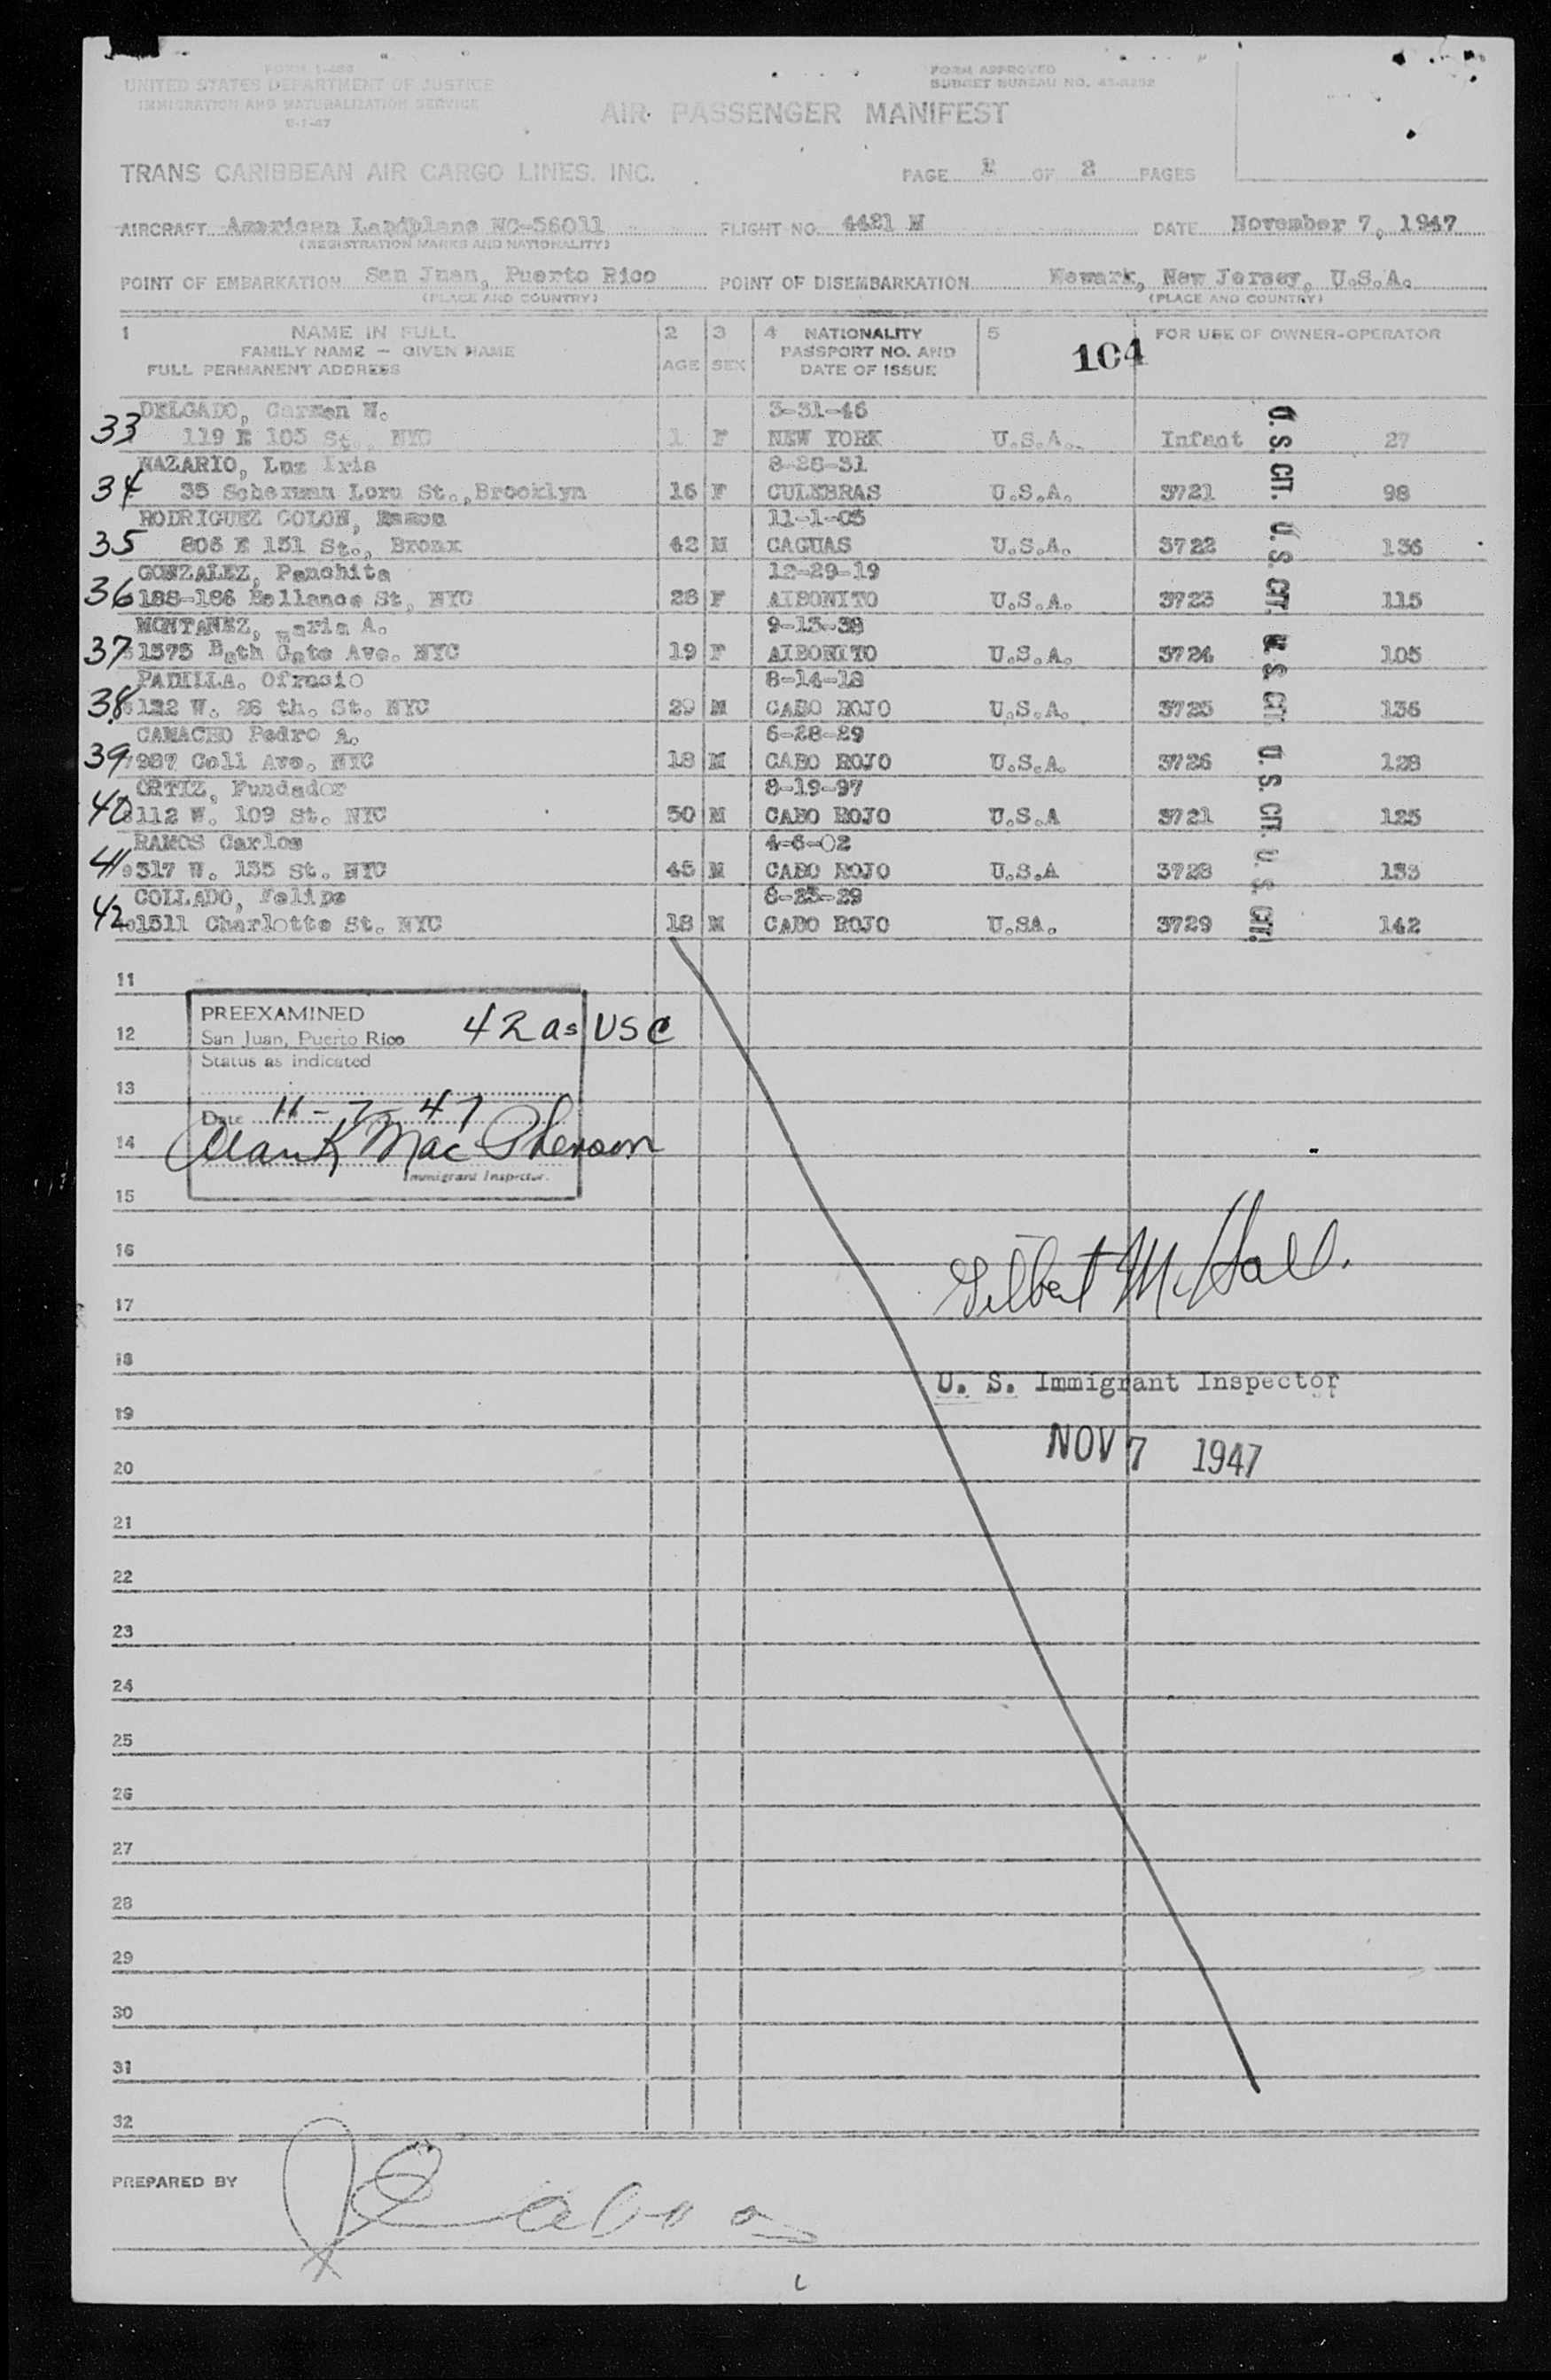 FORM I-466
UNITED STATES DEPARTMENT OF JUSTICE
IMMIGRATION AND NATURALIZATION SERVICE
FORM APPROVED
BUDGET BUREAU NO.
AIR PASSENGER MANIFEST
TRANS CARIBBEAN AIR CARGO LINES, INC.
PAGE 2 OF 2 PAGES
AIRCRAFT American Landplane NC-56011 FLIGHT NO. 4421 N DATE November 7, 1947
(REGISTRATION MARKS AND NATIONALITY)
POINT OF EMBARKATION San Juan, Puerto Rico POINT OF DISEMBARKATION Newark, New Jersey, U.S.A.
(PLACE AND COUNTRY) (PLACE AND COUNTRY)
1 NAME IN FULL 2 3 4 NATIONALITY 5 FOR USE OF OWNER-OPERATOR
FAMILY NAME — GIVEN NAME AGE SEX PASSPORT NO. AND 104
FULL PERMANENT ADDRESS DATE OF ISSUE
DELGADO, Carmen N. 3-31-46
33 119 E 103 St., NYC 1 F NEW YORK U.S.A. Infant U. S. CIT. 27
NAZARIO, Luz Iris 8-28-31
34 35 Scherman Loru St., Brooklyn 16 F CULEBRAS U.S.A. 3721 98
RODRIGUEZ COLON, Ramon 11-1-05
35 805 E 151 St., Bronx 42 M CAGUAS U.S.A. 3722 U. S. CIT. 136
GONZALEZ, Panchita 12-29-19
36 188-186 Bellance St, NYC 28 F AIBONITO U.S.A. 3723 115
MONTANEZ, Maria A. 9-13-38
37 1575 Bath Gate Ave. NYC 19 F AIBONITO U.S.A. 3724 U. S. CIT. 105
PADILLA. Ofrecio 8-14-18
38 122 W. 28 th. St. NYC 29 M CABO ROJO U.S.A. 3725 136
CAMACHO Pedro A. 6-28-29
39 987 Coll Ave. NYC 18 M CABO ROJO U.S.A. 3726 U. S. CIT. 128
ORTIZ, Fundador 8-19-97
40 112 W. 109 St. NYC 50 M CABO ROJO U.S.A 3721 125
RAMOS Carlos 4-6-02
41 317 W. 135 St. NYC 45 M CABO ROJO U.S.A 3728 U. S. CIT. 133
COLLADO, Felipe 8-23-29
42 1511 Charlotte St. NYC 18 M CABO ROJO U.SA. 3729 142
11
PREEXAMINED
12 San Juan, Puerto Rico 42 as USC
Status as indicated
13
Date 11-7-47
14 Mac Pherson
Immigrant Inspector.
15
16
Gilbert McHall.
17
18
U. S. Immigrant Inspector
19
NOV 7 1947
20
21
22
23
24
25
26
27
28
29
30
31
32
PREPARED BY